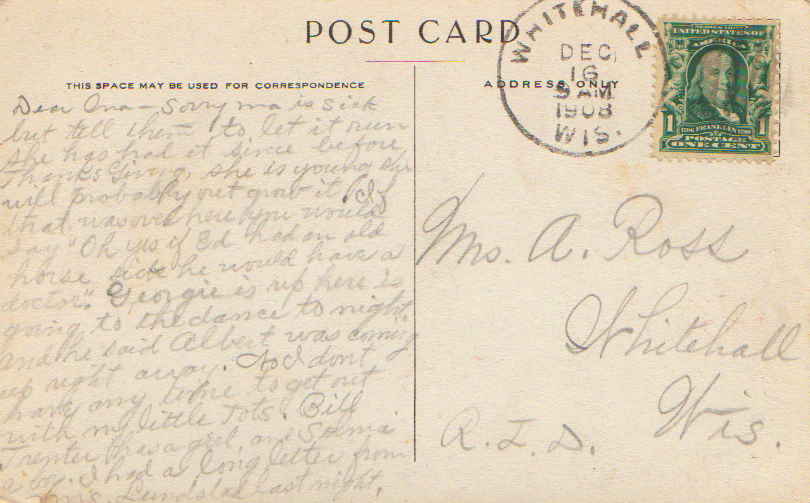 POST CARD
THIS SPACE MAY BE USED FOR CORRESPONDENCE
ADDRESS ONLY
WHITEHALL
DEC
16
9 AM
1908
WIS.
UNITED STATES OF
AMERICA
1 1
FRANKLIN
POSTAGE
ONE CENT
Dear Ona - Sorry ma is sick
but tell them to let it run
she has had it since before
Thanksgiving, she is young she
will probably out grow it. If
that was over here you would
say "Oh yes if Ed had an old
horse sick he would have a
doctor". Georgie is up here is
going to the dance to night.
and he said Albert was coming
up right away. I dont
have any time to get out
with my little tots. Bill
Trenter has a girl and Selma
a boy. I had a long letter from
last night.
Mrs. A. Ross
Whitehall
Wis.
R.F.D.